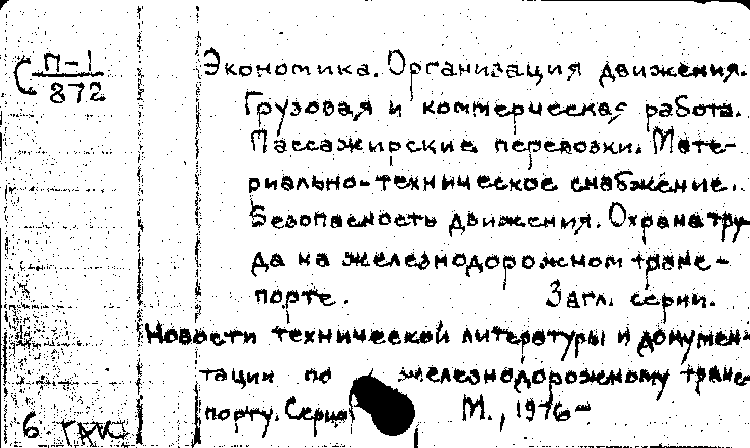 С П-1
872
Экономика. Организация движения.
Грузовая и коммерческая работа.
Пассажирские перевозки. Мате-
риально-техническое снабжение.
Безопасность движения. Охрана тру-
да на железнодорожном транс-
порте. Загл. серии.
Новости технической литературы и докумен-
тации по железнодорожному транс-
порту. Серия М., 1976-
6